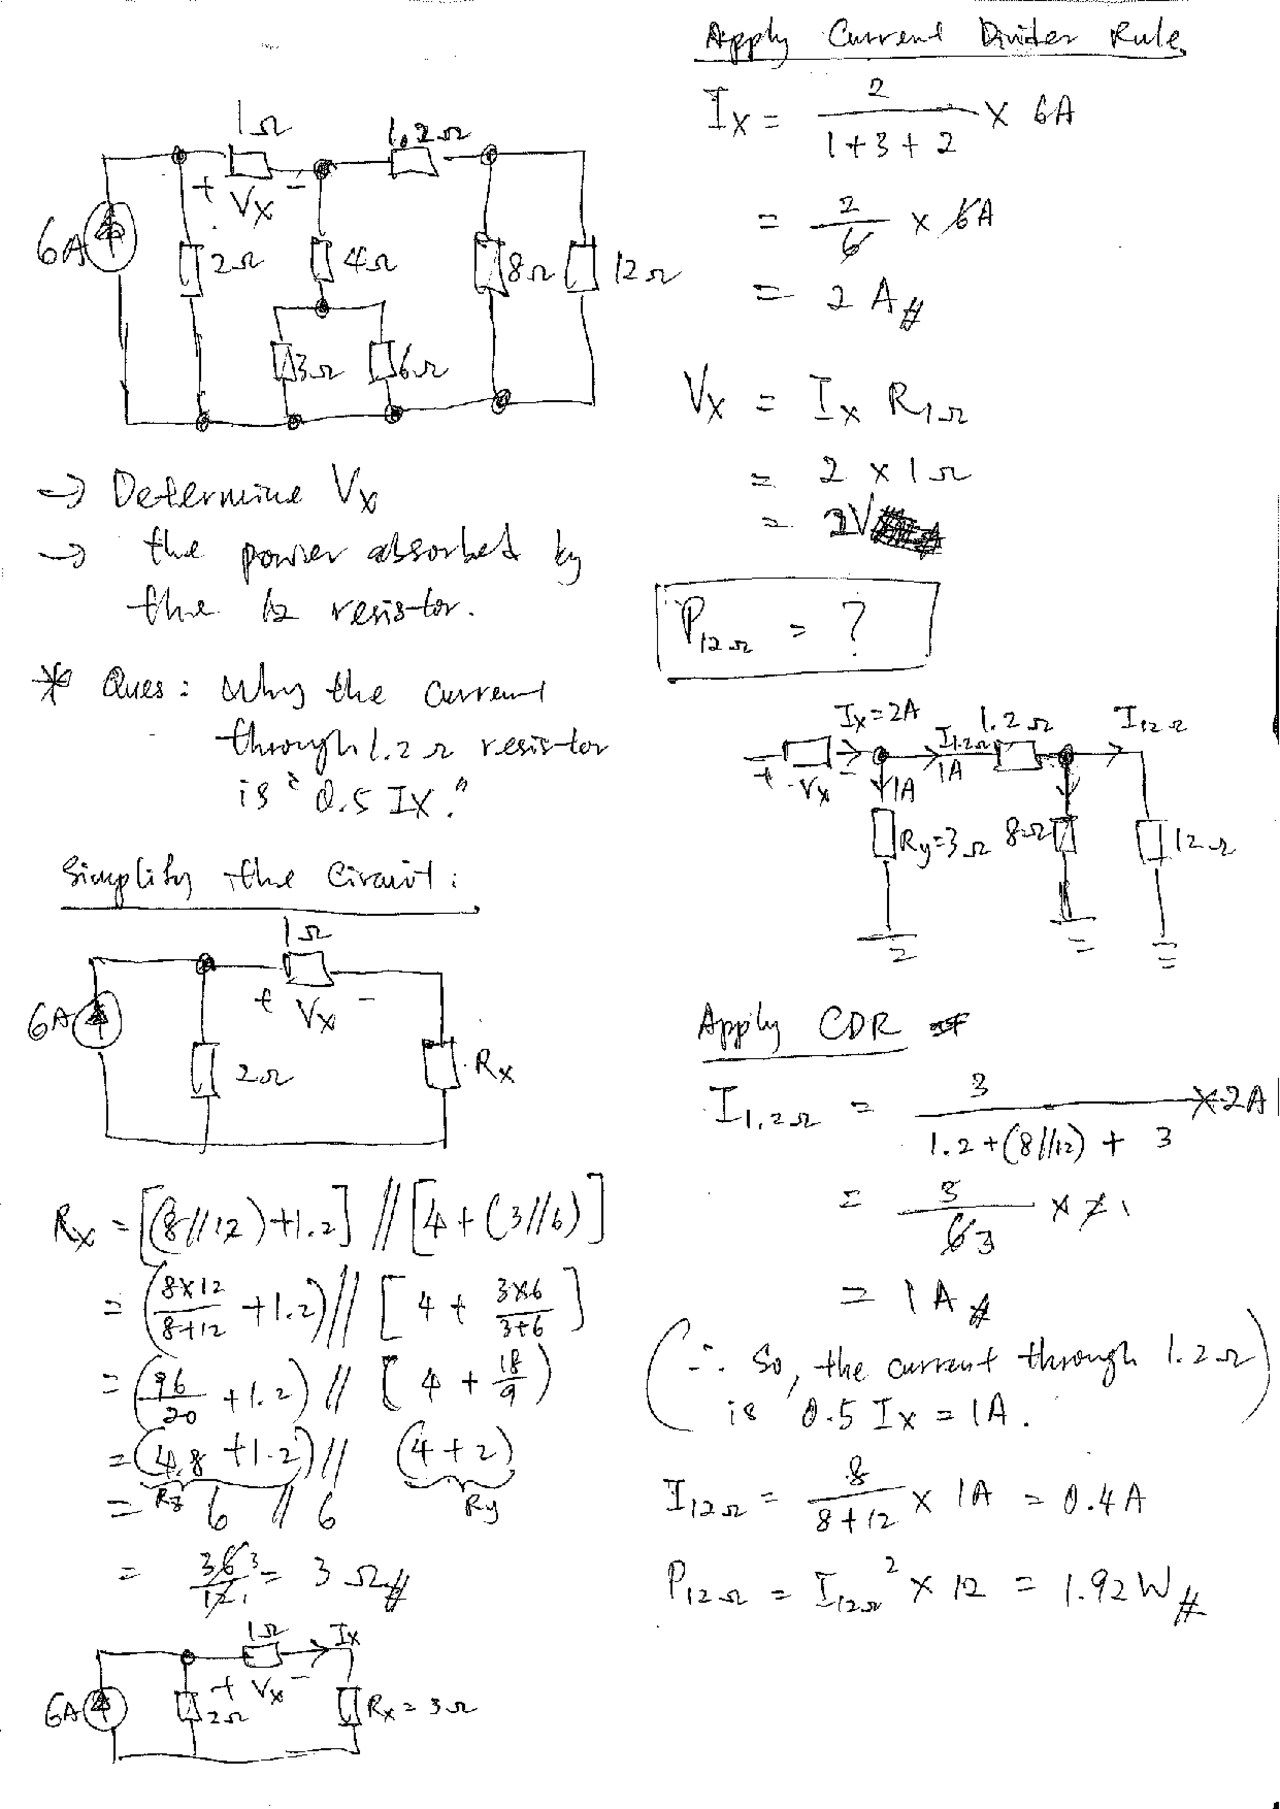 1Ω
1.2Ω
+ Vx -
6A
2Ω
4Ω
8Ω
12Ω
3Ω
6Ω
→ Determine Vx
→ the power absorbed by
the 12 resistor.
* Ques : Why the current
through 1.2Ω resistor
is "0.5 Ix."
Simplify the Circuit :
1Ω
+ Vx -
6A
2Ω
Rx
Rx = [(8//12)+1.2] // [4+(3//6)]
= (8×12/8+12 +1.2) // [4 + 3×6/3+6]
= (96/20 +1.2) // (4 + 18/9)
= (4.8 +1.2) // (4+2)
Rz Ry
= 6 // 6
= 36/12 = 3Ω#
3
1
1Ω Ix
+ Vx -
6A
2Ω
Rx = 3Ω
Apply Current Divider Rule
Ix = 2/1+3+2 × 6A
= 2/6 × 6A
= 2A#
Vx = Ix R1Ω
= 2 × 1Ω
= 2V
P12Ω = ?
Ix=2A I1.2Ω 1.2Ω I12Ω
+ Vx - 1A 1A
Ry=3Ω 8Ω 12Ω
Apply CDR
I1.2Ω = 3/1.2+(8//12)+3 ×2A
= 3/6 × 2
3 1
= 1A#
(∴ So, the current through 1.2Ω
is 0.5 Ix = 1A.)
I12Ω = 8/8+12 × 1A = 0.4A
P12Ω = I12Ω² × 12 = 1.92W#